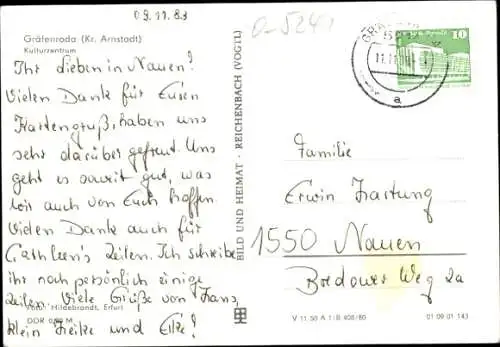 09.11.83
0-5241
Gräfenroda (Kr. Arnstadt)
Kulturzentrum
Ihr Lieben in Nauen!
Vielen Dank für Euren
Kartengruß, haben uns
sehr darüber gefreut. Uns
geht es soweit gut, was
wir auch von Euch hoffen.
Vielen Dank auch für
Cathleen's Zeilen. Ich schreibe
ihr noch persönlich einige
Zeilen. Viele Grüße von Hans,
klein Heike und Elke!
Foto: Hildebrandt, Erfurt
DDR 0,20 M
BILD UND HEIMAT · REICHENBACH (VOGTL)
10
a
Familie
Erwin Hartung
1550 Nauen
Bredower Weg 2a
V 11 50 A 1/B 408/80
01 09 01 143